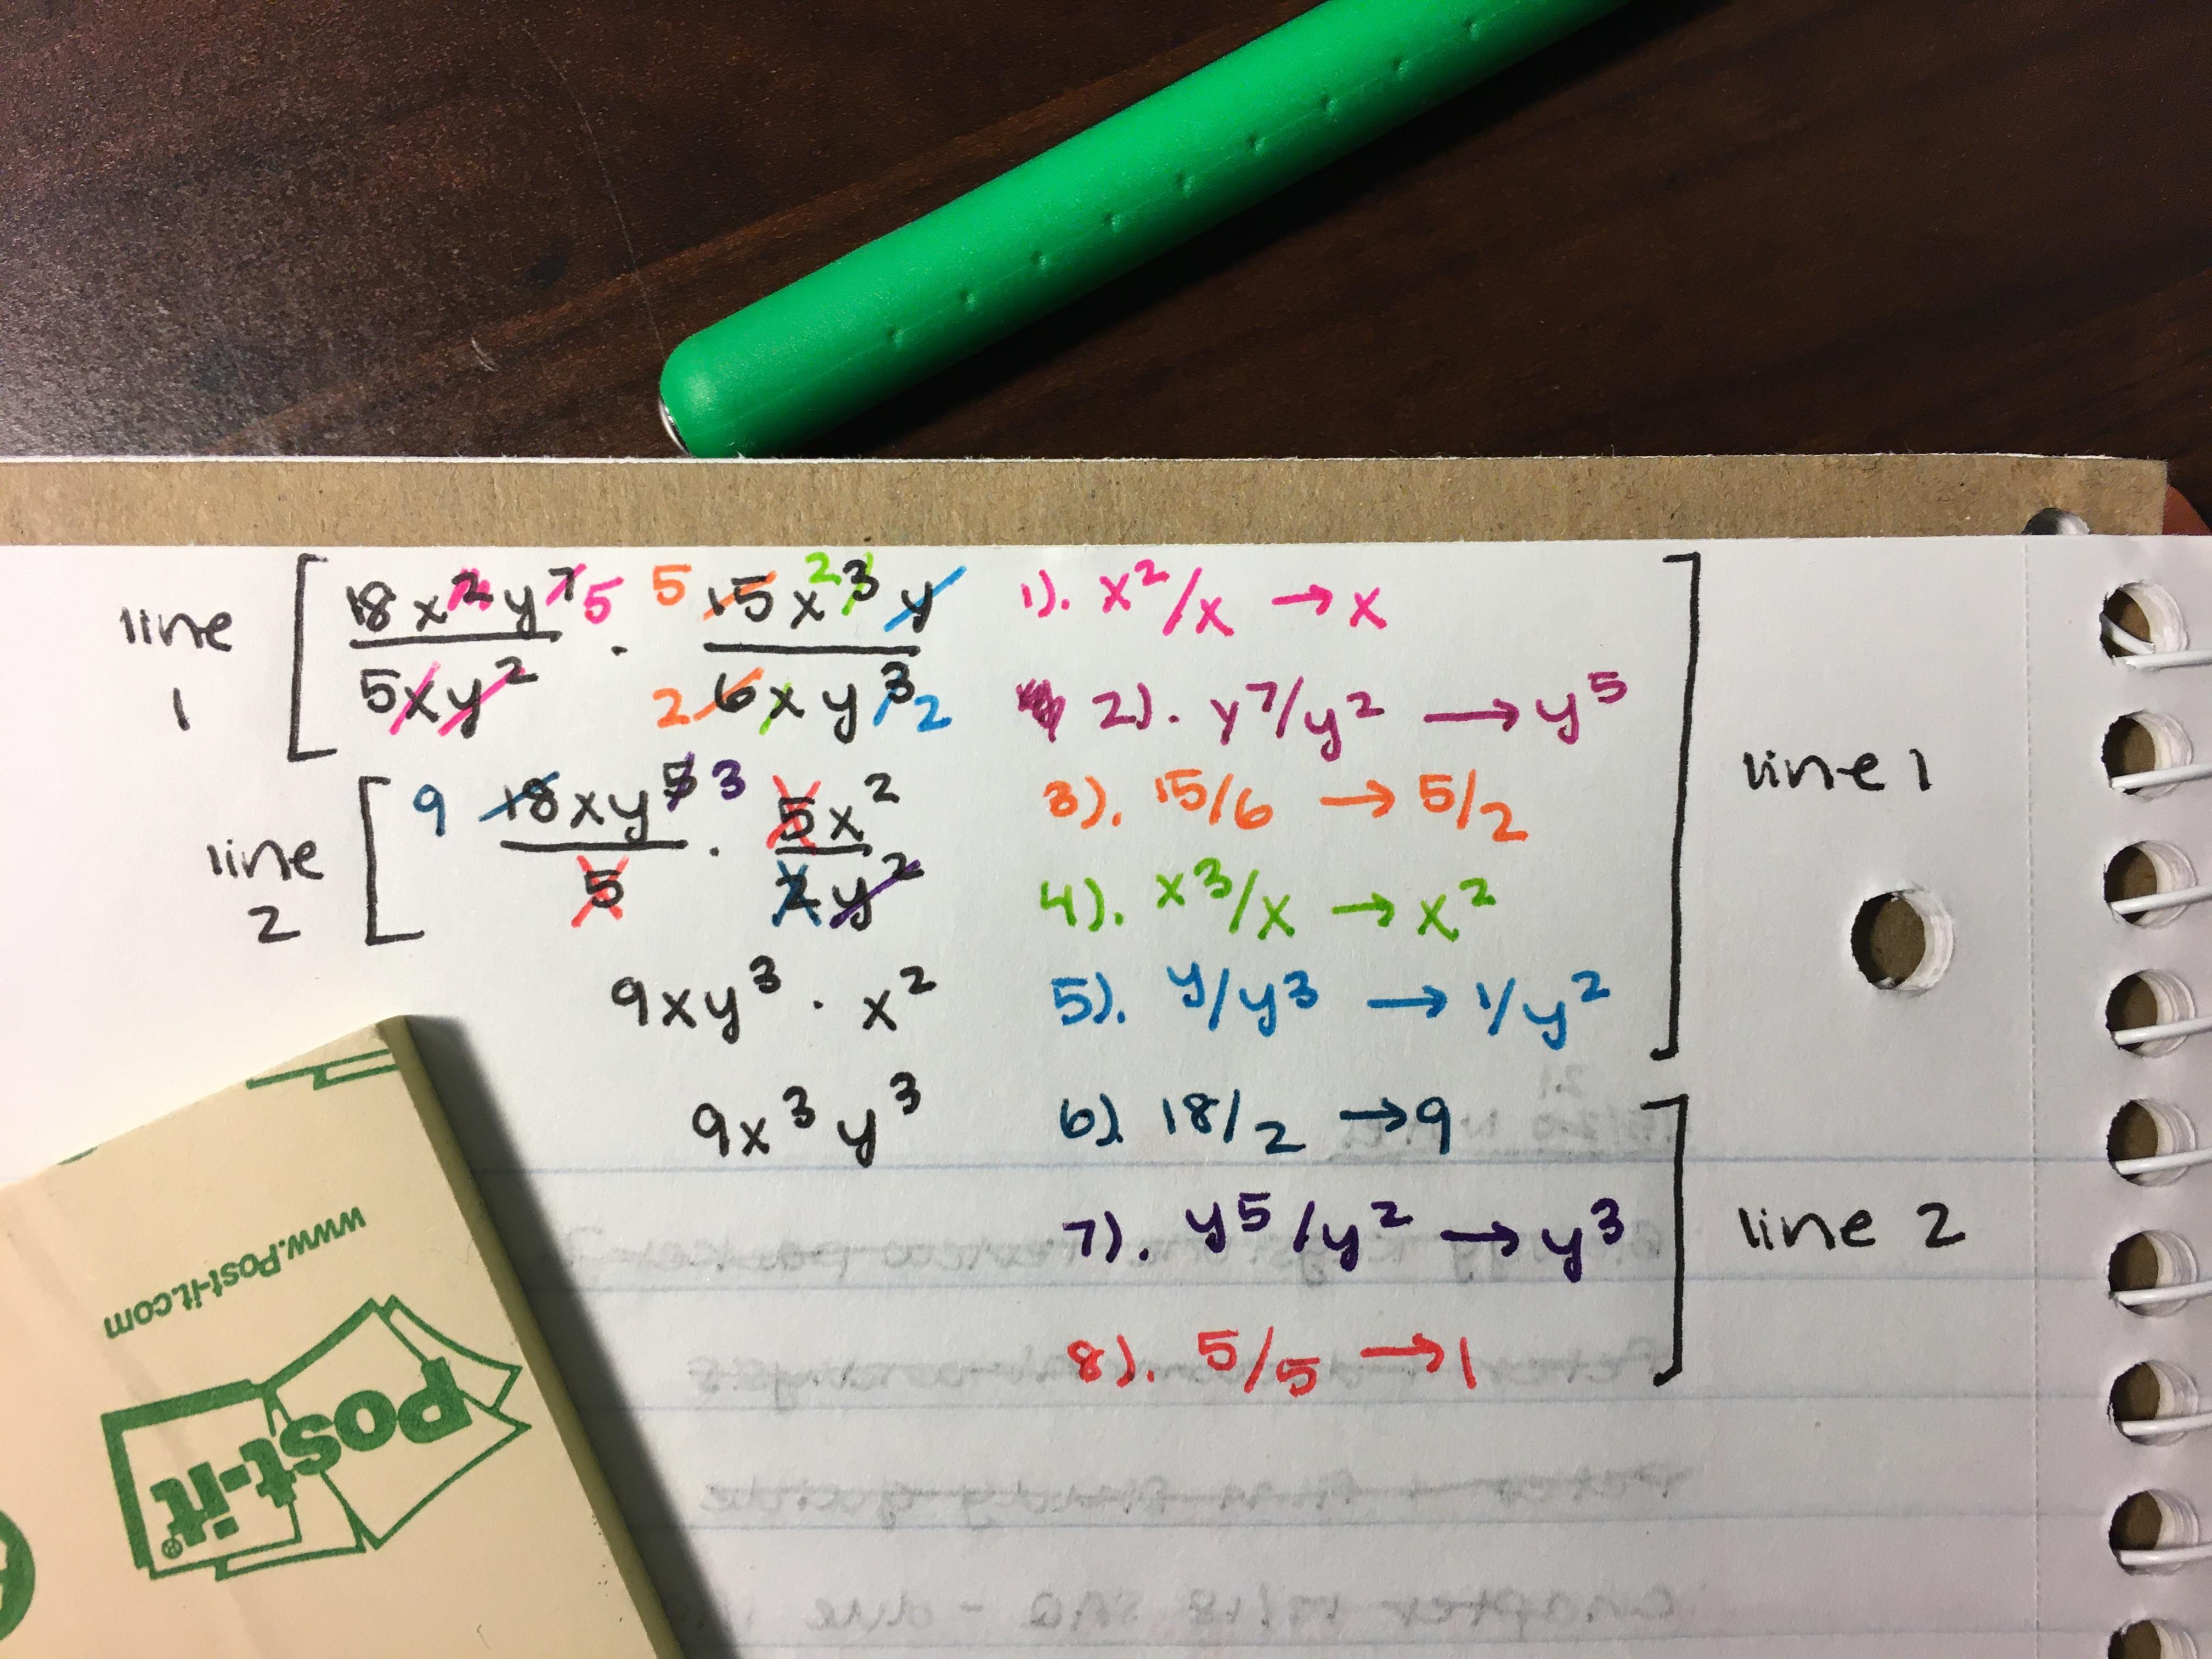 line 1
18x²y⁷ 5 / 5xy² · 5 15x² ³y / 2 6xy³ 2
line 2
9 18xy⁵ 3 / 5 · 5x² / 2y²
9xy³ · x²
9x³y³
1). x²/x → x
2). y⁷/y² → y⁵
3). 15/6 → 5/2
4). x³/x → x²
5). y/y³ → 1/y²
line 1
6). 18/2 → 9
7). y⁵/y² → y³
8). 5/5 → 1
line 2
www.Post-it.com
Post-it®